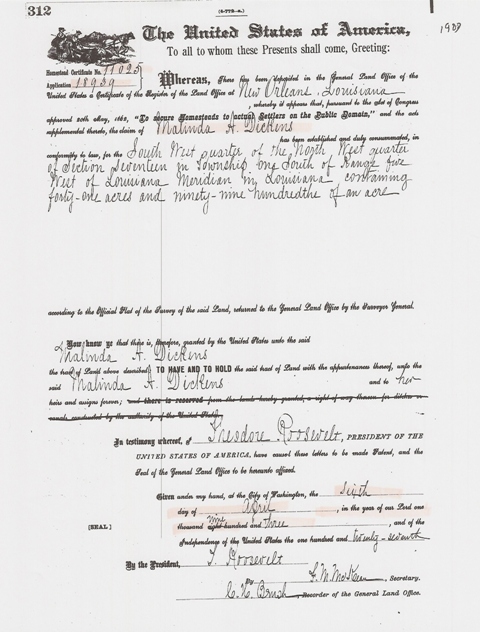 312
(4-772-R.)
1903
The United States of America,
To all to whom these Presents shall come, Greeting:
Homestead Certificate No. 11025
Application 18939
Whereas, There has been deposited in the General Land Office of the
United States a Certificate of the Register of the Land Office at New Orleans, Louisiana
, whereby it appears that, pursuant to the Act of Congress
approved 20th May, 1862, "To secure Homesteads to actual Settlers on the Public Domain," and the acts
supplemental thereto, the claim of Malinda A. Dickens
has been established and duly consummated, in
conformity to law, for the South West quarter of the North West quarter
of Section Seventeen in Township one South of Range five
West of Louisiana Meridian in Louisiana containing
forty-one acres and ninety-nine hundredths of an acre
according to the Official Plat of the Survey of the said Land, returned to the General Land Office by the Surveyor General.
Now know ye that there is, therefore, granted by the United States unto the said
Malinda A. Dickens
the tract of Land above described; TO HAVE AND TO HOLD the said tract of Land with the appurtenances thereof, unto the
said Malinda A. Dickens and to her
heirs and assigns forever; and there is reserved from the lands hereby granted, a right of way thereon for ditches or
canals constructed by the authority of the United States.
In testimony whereof, I, Theodore Roosevelt, PRESIDENT OF THE
UNITED STATES OF AMERICA, have caused these letters to be made Patent, and the
Seal of the General Land Office to be hereunto affixed.
Given under my hand, at the City of Washington, the sixth
day of April, in the year of our Lord one
thousand nine eight hundred and three, and of the
[SEAL]
Independence of the United States the one hundred and twenty-seventh
By the President, T. Roosevelt
By F. M. McKean, Secretary.
C. H. Brush, Recorder of the General Land Office.